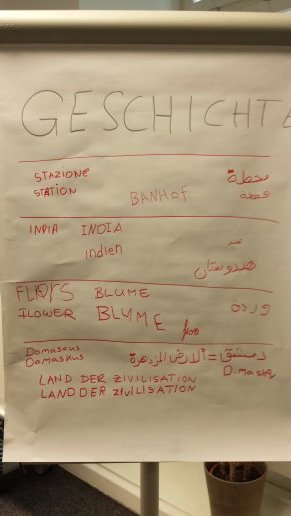 GESCHICHTE
STAZIONE محطة
STATION BANHOF
INDIA INDIA
indien هند
هندوستان
FLORS BLUME وردة
FLOWER BLUME
Damascus دمشق = الارض المزدهرة
Damaskus Dimashq
LAND DER ZIVILISATION
LAND DER ZIVILISATION